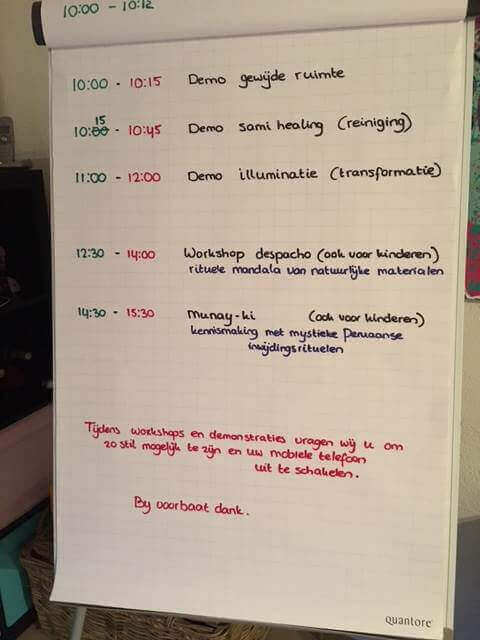 10:00 - 10:12
10:00 - 10:15 Demo gewijde ruimte
15
10:00 - 10:45 Demo sami healing (reiniging)
11:00 - 12:00 Demo illuminatie (transformatie)
12:30 - 14:00 Workshop despacho (ook voor kinderen)
rituele mandala van natuurlijke materialen
14:30 - 15:30 Munay-ki (ook voor kinderen)
kennismaking met mystieke Peruaanse
inwijdingsrituelen
Tijdens workshops en demonstraties vragen wij u om
zo stil mogelijk te zijn en uw mobiele telefoon
uit te schakelen.
By voorbaat dank.
quantore